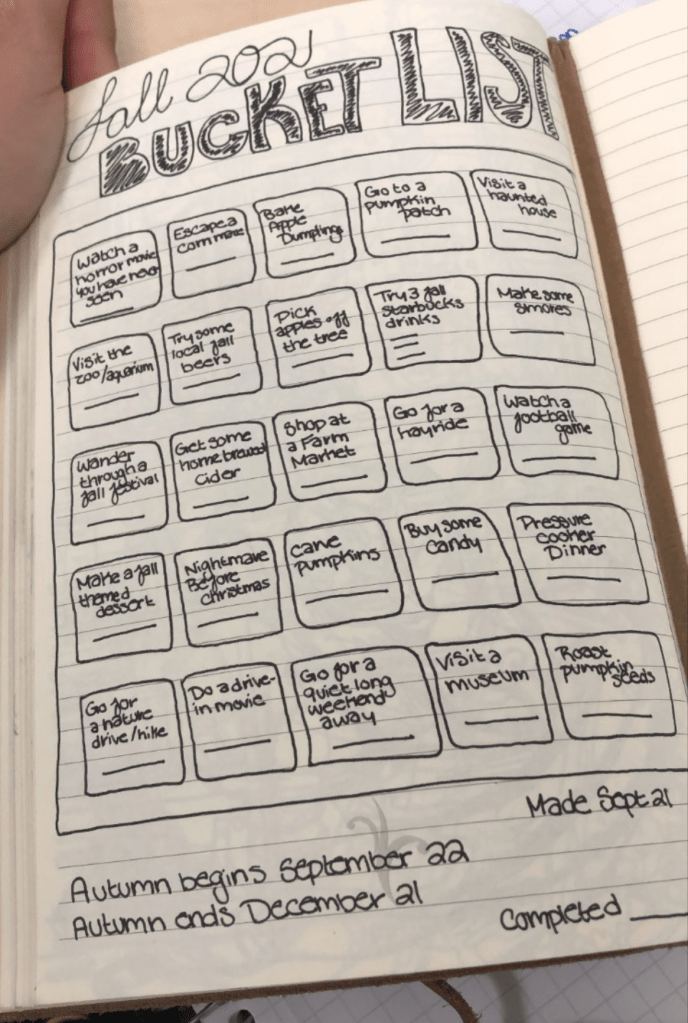 Fall 2021
BUCKET LIST
Watch a
horror movie
you have never
seen
Escape a
corn maze
Bake
Apple
Dumplings
Go to a
pumpkin
patch
Visit a
haunted
house
Visit the
zoo/aquarium
Try some
local fall
beers
Pick
apples off
the tree
Try 3 fall
starbucks
drinks
Make some
smores
Wander
through a
fall festival
Get some
home brewed
cider
Shop at
a Farm
Market
Go for a
hayride
Watch a
football
game
Make a fall
themed
dessert
Nightmare
Before
Christmas
Carve
pumpkins
Buy some
candy
Pressure
cooker
Dinner
Go for
a nature
drive/hike
Do a drive-
in movie
Go for a
quiet long
weekend
away
Visit a
museum
Roast
pumpkin
seeds
Made Sept 21
Autumn begins September 22
Autumn ends December 21
Completed